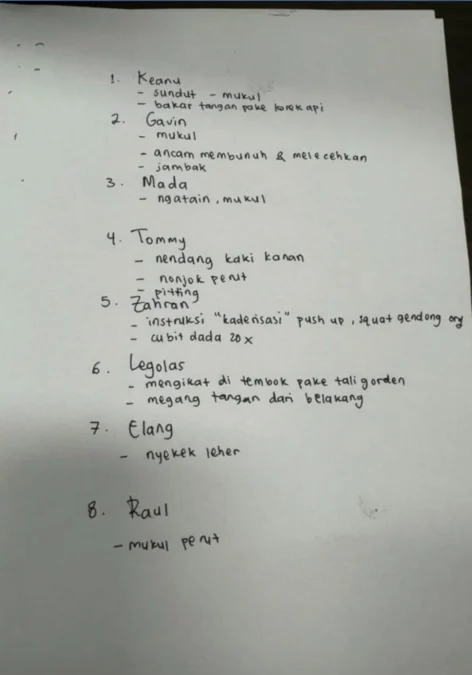 1. Keanu
- sundut - mukul
- bakar tangan pake korek api
2. Gavin
- mukul
- ancam membunuh & melecehkan
- jambak
3. Mada
- ngatain, mukul
4. Tommy
- nendang kaki kanan
- nonjok perut
- pitting
5. Zahran
- instruksi "kaderisasi" push up, squat gendong org
- cubit dada 20x
6. Legolas
- mengikat di tembok pake tali gorden
- megang tangan dari belakang
7. Elang
- nyekek leher
8. Raul
- mukul perut